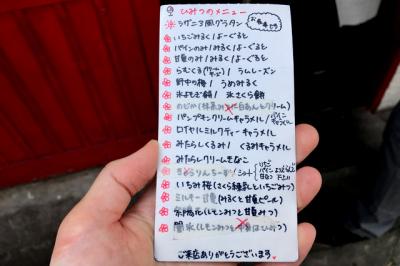 ひみつのメニュー
ラザニア風グラタン
お食事です
いちごみるく/よーぐると
パインのみ/みるく/よーぐると
甘夏のみ/みるく/よーぐると
らむくる / ラムレーズン
野中の梅 / うめみるく
氷よもぎ餅 / 氷さくら餅
のどか(抹茶みつに白あんとクリーム)
パンプキンクリームキャラメル
ロイヤルミルクティーキャラメル
みたらしくるみ / くるみキャラメル
みたらしクリームきなこ
いちみ梅(さくら練乳といちごみつ)
ミルキー甘夏(みるくと甘夏ピール)
(レモンみつと甘夏みつ)
ご来店ありがとうございます。